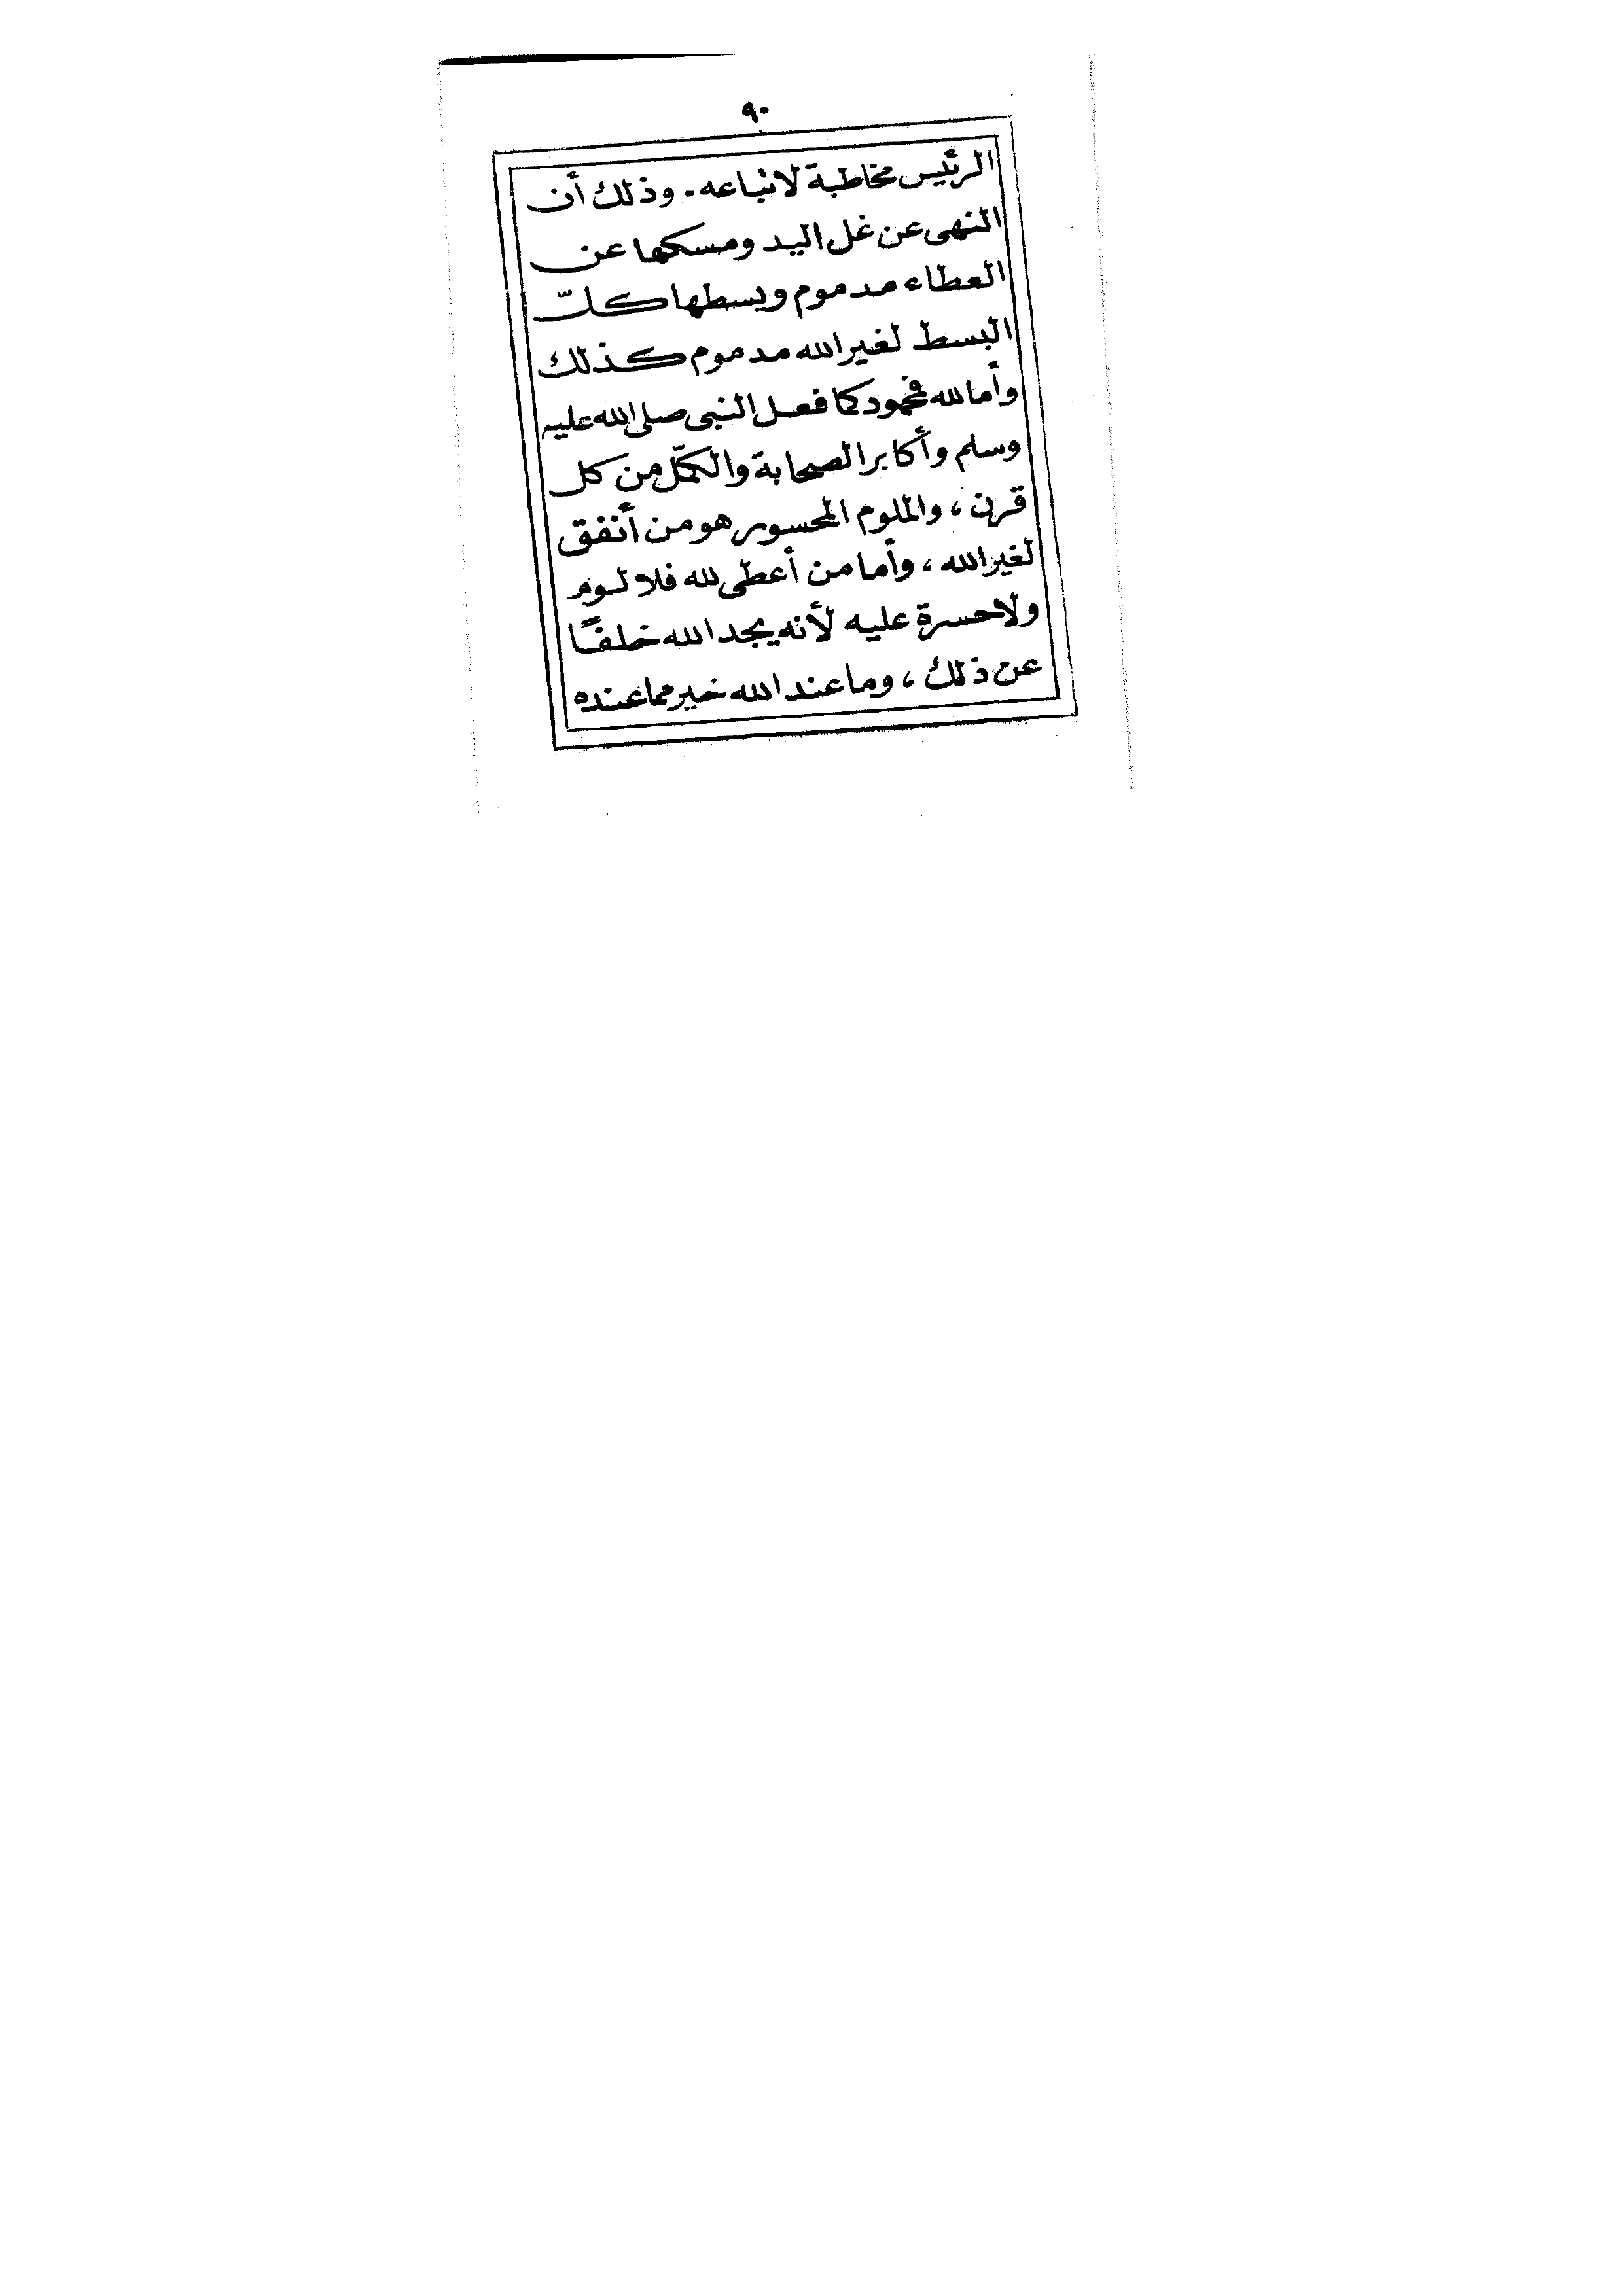 ٩٠
الرئيس مخاطبة لاتباعه . وذلك أن
النهى عن غل اليد ومسكها عن
العطاء مدموم وبسطها كلّ
البسط لغير الله مدموم كذلك
وأما لله فمحمود كما فعل النبى صلى الله عليه
وسلم وأكابر الصحابة والكمّل من كل
قرن ، والملوم المحسور هو من أنفق
لغير الله ، وأما من أعطى لله فلا لوم
ولا حسرة عليه لأنه يجد الله خلفًا
عن ذلك ، وما عند الله خير مما عنده